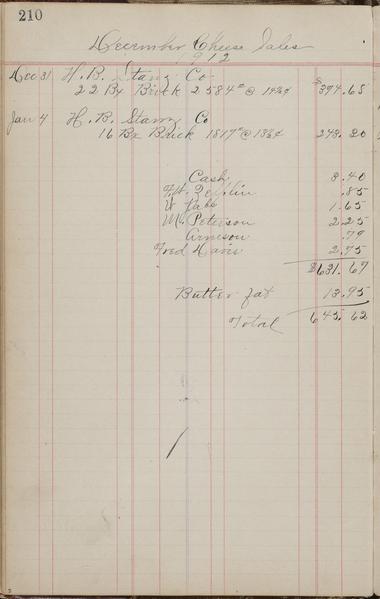 210
December Cheese Sales
1912
Dec 31 H. B. Stanz Co
22 Bx Brick 2584# @ 14½¢ $374.68
Jan 4 H. B. Stanz Co
16 Bx Brick 1817# @ 13½¢ 245.30
Cash 3.40
.85
1.65
M. Peterson 2.25
Arneson .79
Fred Davis 2.75
$631.67
Butter fat 13.95
Total 645.62